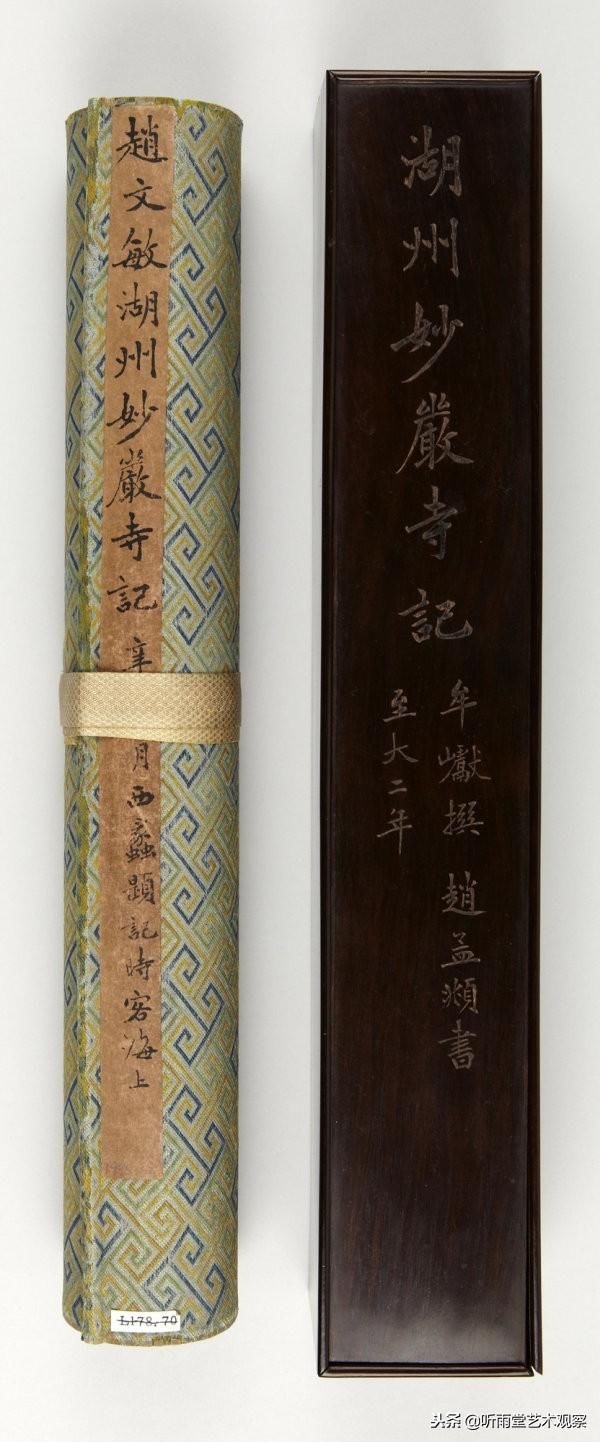 趙文敏湖州妙嚴寺記
月西蠡題記時客海上
L178.70
湖州妙嚴寺記
牟巘撰 趙孟頫書
至大二年
头条@听雨堂艺术观察